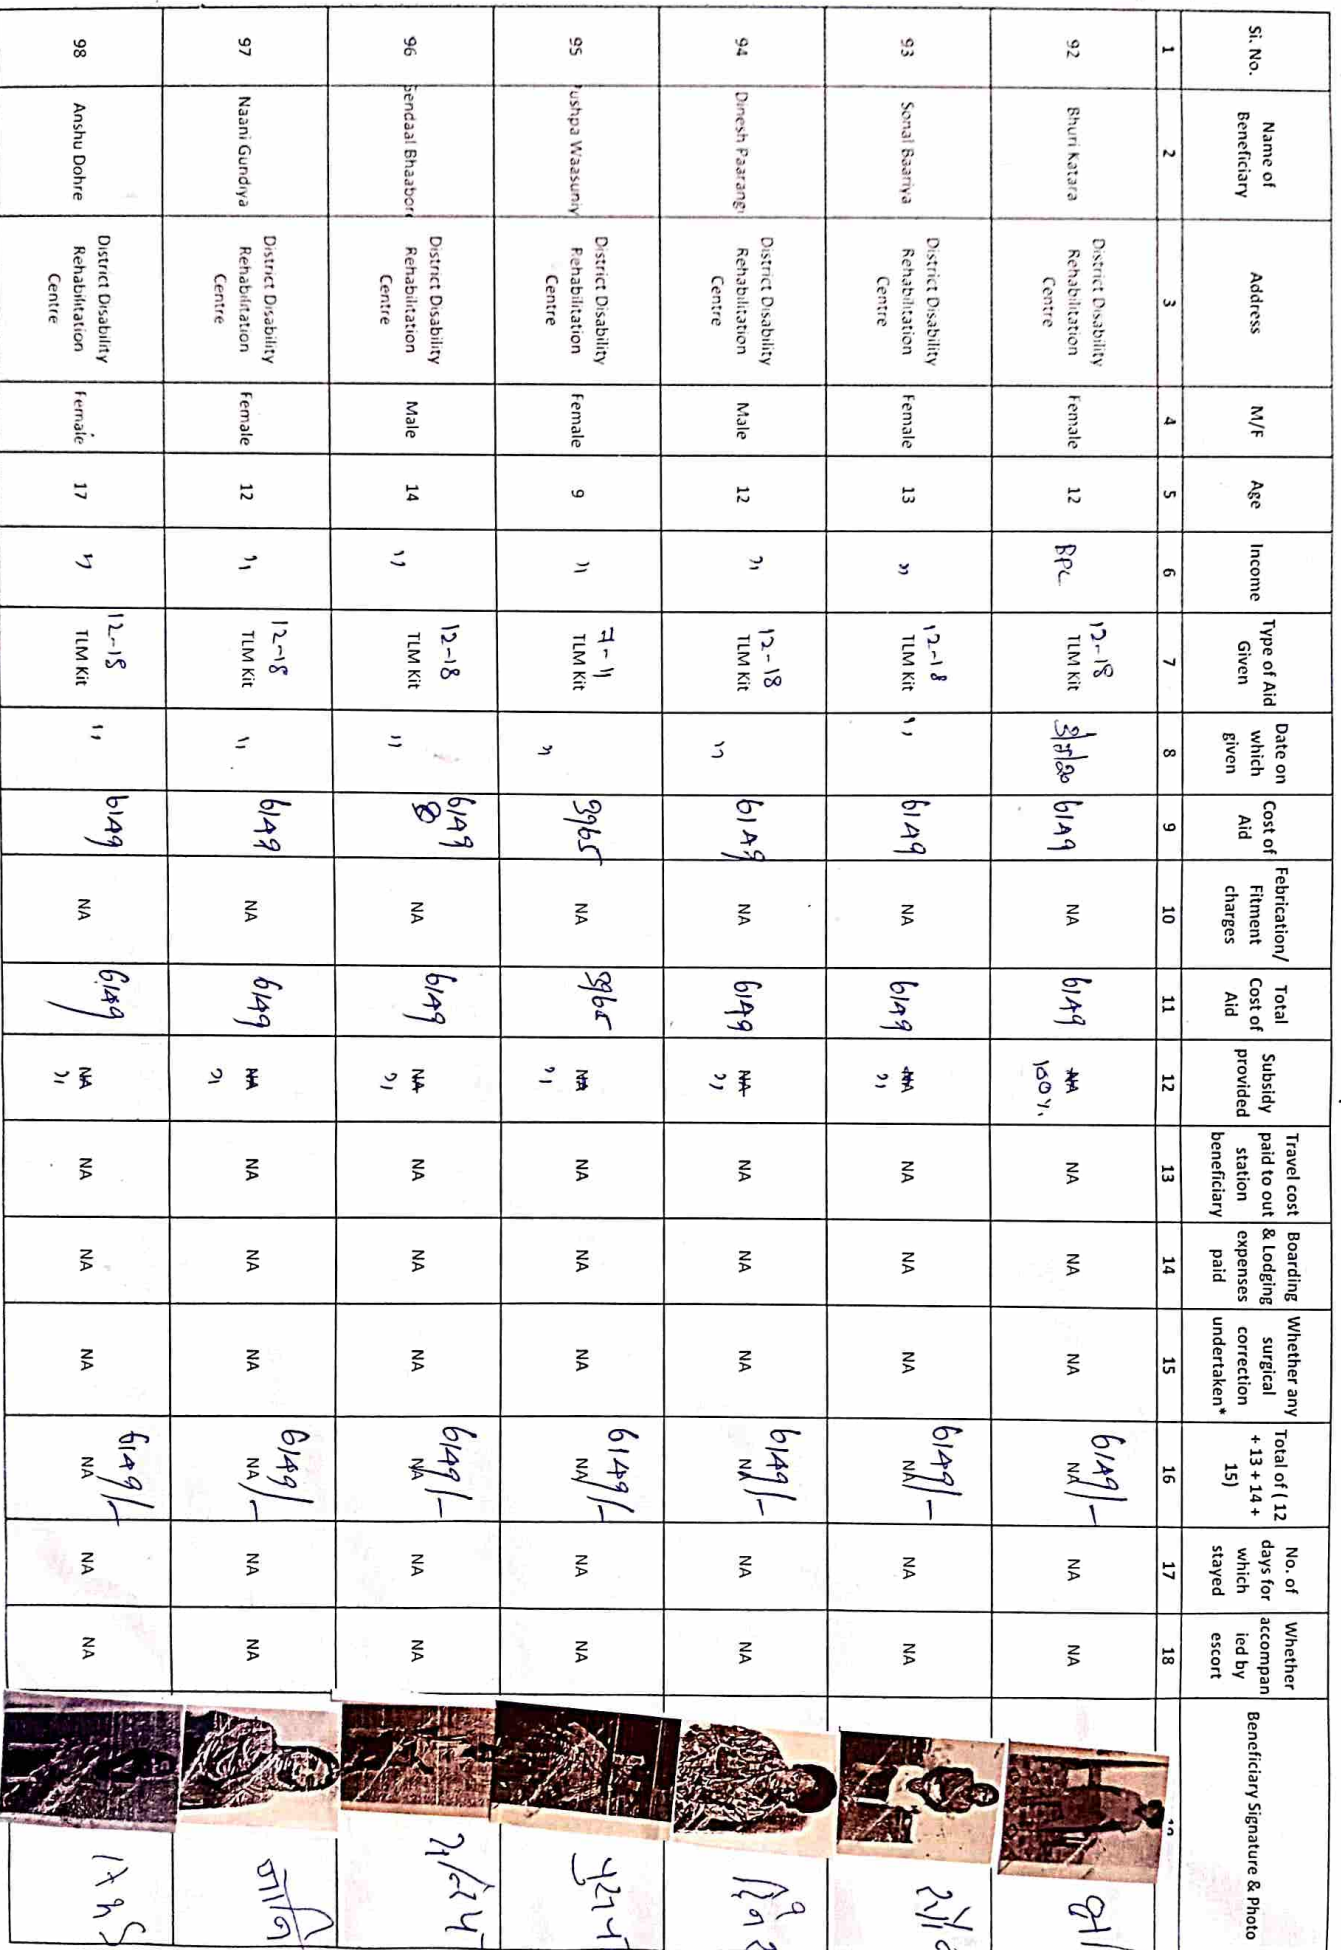 Si. No. | Name of Beneficiary | Address | M/F | Age | Income | Type of Aid Given | Date on which given | Cost of Aid | Febrication/ Fitment charges | Total Cost of Aid | Subsidy provided | Travel cost paid to out station beneficiary | Boarding & Lodging expenses paid | Whether any surgical correction undertaken* | Total of ( 12 + 13 + 14 + 15) | No. of days for which stayed | Whether accompan ied by escort | Beneficiary Signature & Photo
1 | 2 | 3 | 4 | 5 | 6 | 7 | 8 | 9 | 10 | 11 | 12 | 13 | 14 | 15 | 16 | 17 | 18
92 | Bhuri Katara | District Disability Rehabilitation Centre | Female | 12 | BPL | 12-18 TLM Kit | | 6149 | NA | 6149 | NA 100% | NA | NA | NA | 6149/- NA | NA | NA
93 | Sonal Baariya | District Disability Rehabilitation Centre | Female | 13 | " | 12-18 TLM Kit | " | 6149 | NA | 6149 | NA " | NA | NA | NA | 6149/- NA | NA | NA
94 | Dinesh Paarangi | District Disability Rehabilitation Centre | Male | 12 | " | 12-18 TLM Kit | " | 6149 | NA | 6149 | NA " | NA | NA | NA | 6149/- NA | NA | NA
95 | ushpa Waasuniy | District Disability Rehabilitation Centre | Female | 9 | " | 7-11 TLM Kit | " | 3965 | NA | 3965 | NA " | NA | NA | NA | 6149/- NA | NA | NA
96 | endaal Bhaabor | District Disability Rehabilitation Centre | Male | 14 | " | 12-18 TLM Kit | " | 6149 | NA | 6149 | NA " | NA | NA | NA | 6149/- NA | NA | NA
97 | Naani Gundiya | District Disability Rehabilitation Centre | Female | 12 | " | 12-18 TLM Kit | " | 6149 | NA | 6149 | NA " | NA | NA | NA | 6149/- NA | NA | NA
98 | Anshu Dohre | District Disability Rehabilitation Centre | Female | 17 | " | 12-18 TLM Kit | " | 6149 | NA | 6149 | NA " | NA | NA | NA | 6149/- NA | NA | NA